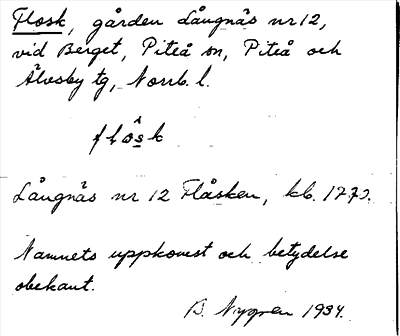 Flosk, gården Långnäs nr 12,
vid Berget, Piteå sn, Piteå och
Älvsby tg, Norrb. l.
flåsk
Långnäs nr 12 Flåsken, kb. 1770.
Namnets uppkomst och betydelse
obekant.
B. Nygren 1934.